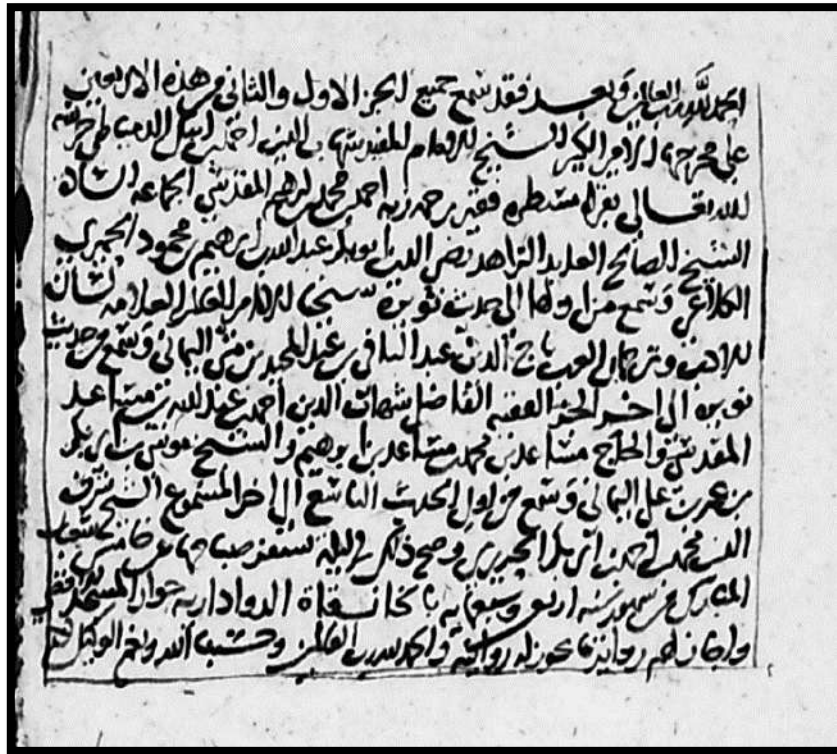 الحمد لله رب العالمين وبعد فقد سمع جميع الجزء الاول والثاني من هذه الاربعين
على مخرجها الامير الكبير الشيخ الامام المفيد شهاب الدين احمد بن ايبك الدمياطي
الله تعالى بقراة مسطره فقير رحمة ربه احمد بن محمد بن ابرهيم المقدسي الجماعة السادة
الشيخ الصالح العابد الزاهد الدين ابو بكر عبد الله بن ابرهيم بن محمود الجميري
الكلاعي وسمع من اولها الى حديث سيخنا الامام العلامة لسان
الادب وترجمان العرب تاج الدين عبد الباقي بن عبد المجيد بن اليماني وسمع من حديث
الى اخر الجزء الفقيه الفاضل شهاب الدين احمد بن عبد الله بن مساعد
المقدسي والحاج مساعد بن محمد بن مساعد بن ابرهيم والشيخ يونس بن ابي بكر
بن عمر بن علي اليماني وسمع من اول الحديث التاسع الى اخر المسموع الشيخ شرف
الدين محمد بن احمد بن ابي بكر الحريري وصح ذلك في ليلة تسفر صباحها عن خامس شعبان
المبارك من شهور سنه اربع وسبعمايه بالخانقاة الدوادارية جوار المسجد الاقصى
واجاز لهم رواية ما يجوز له روايته والحمد لله رب العالمين وحسبنا الله ونعم الوكيل